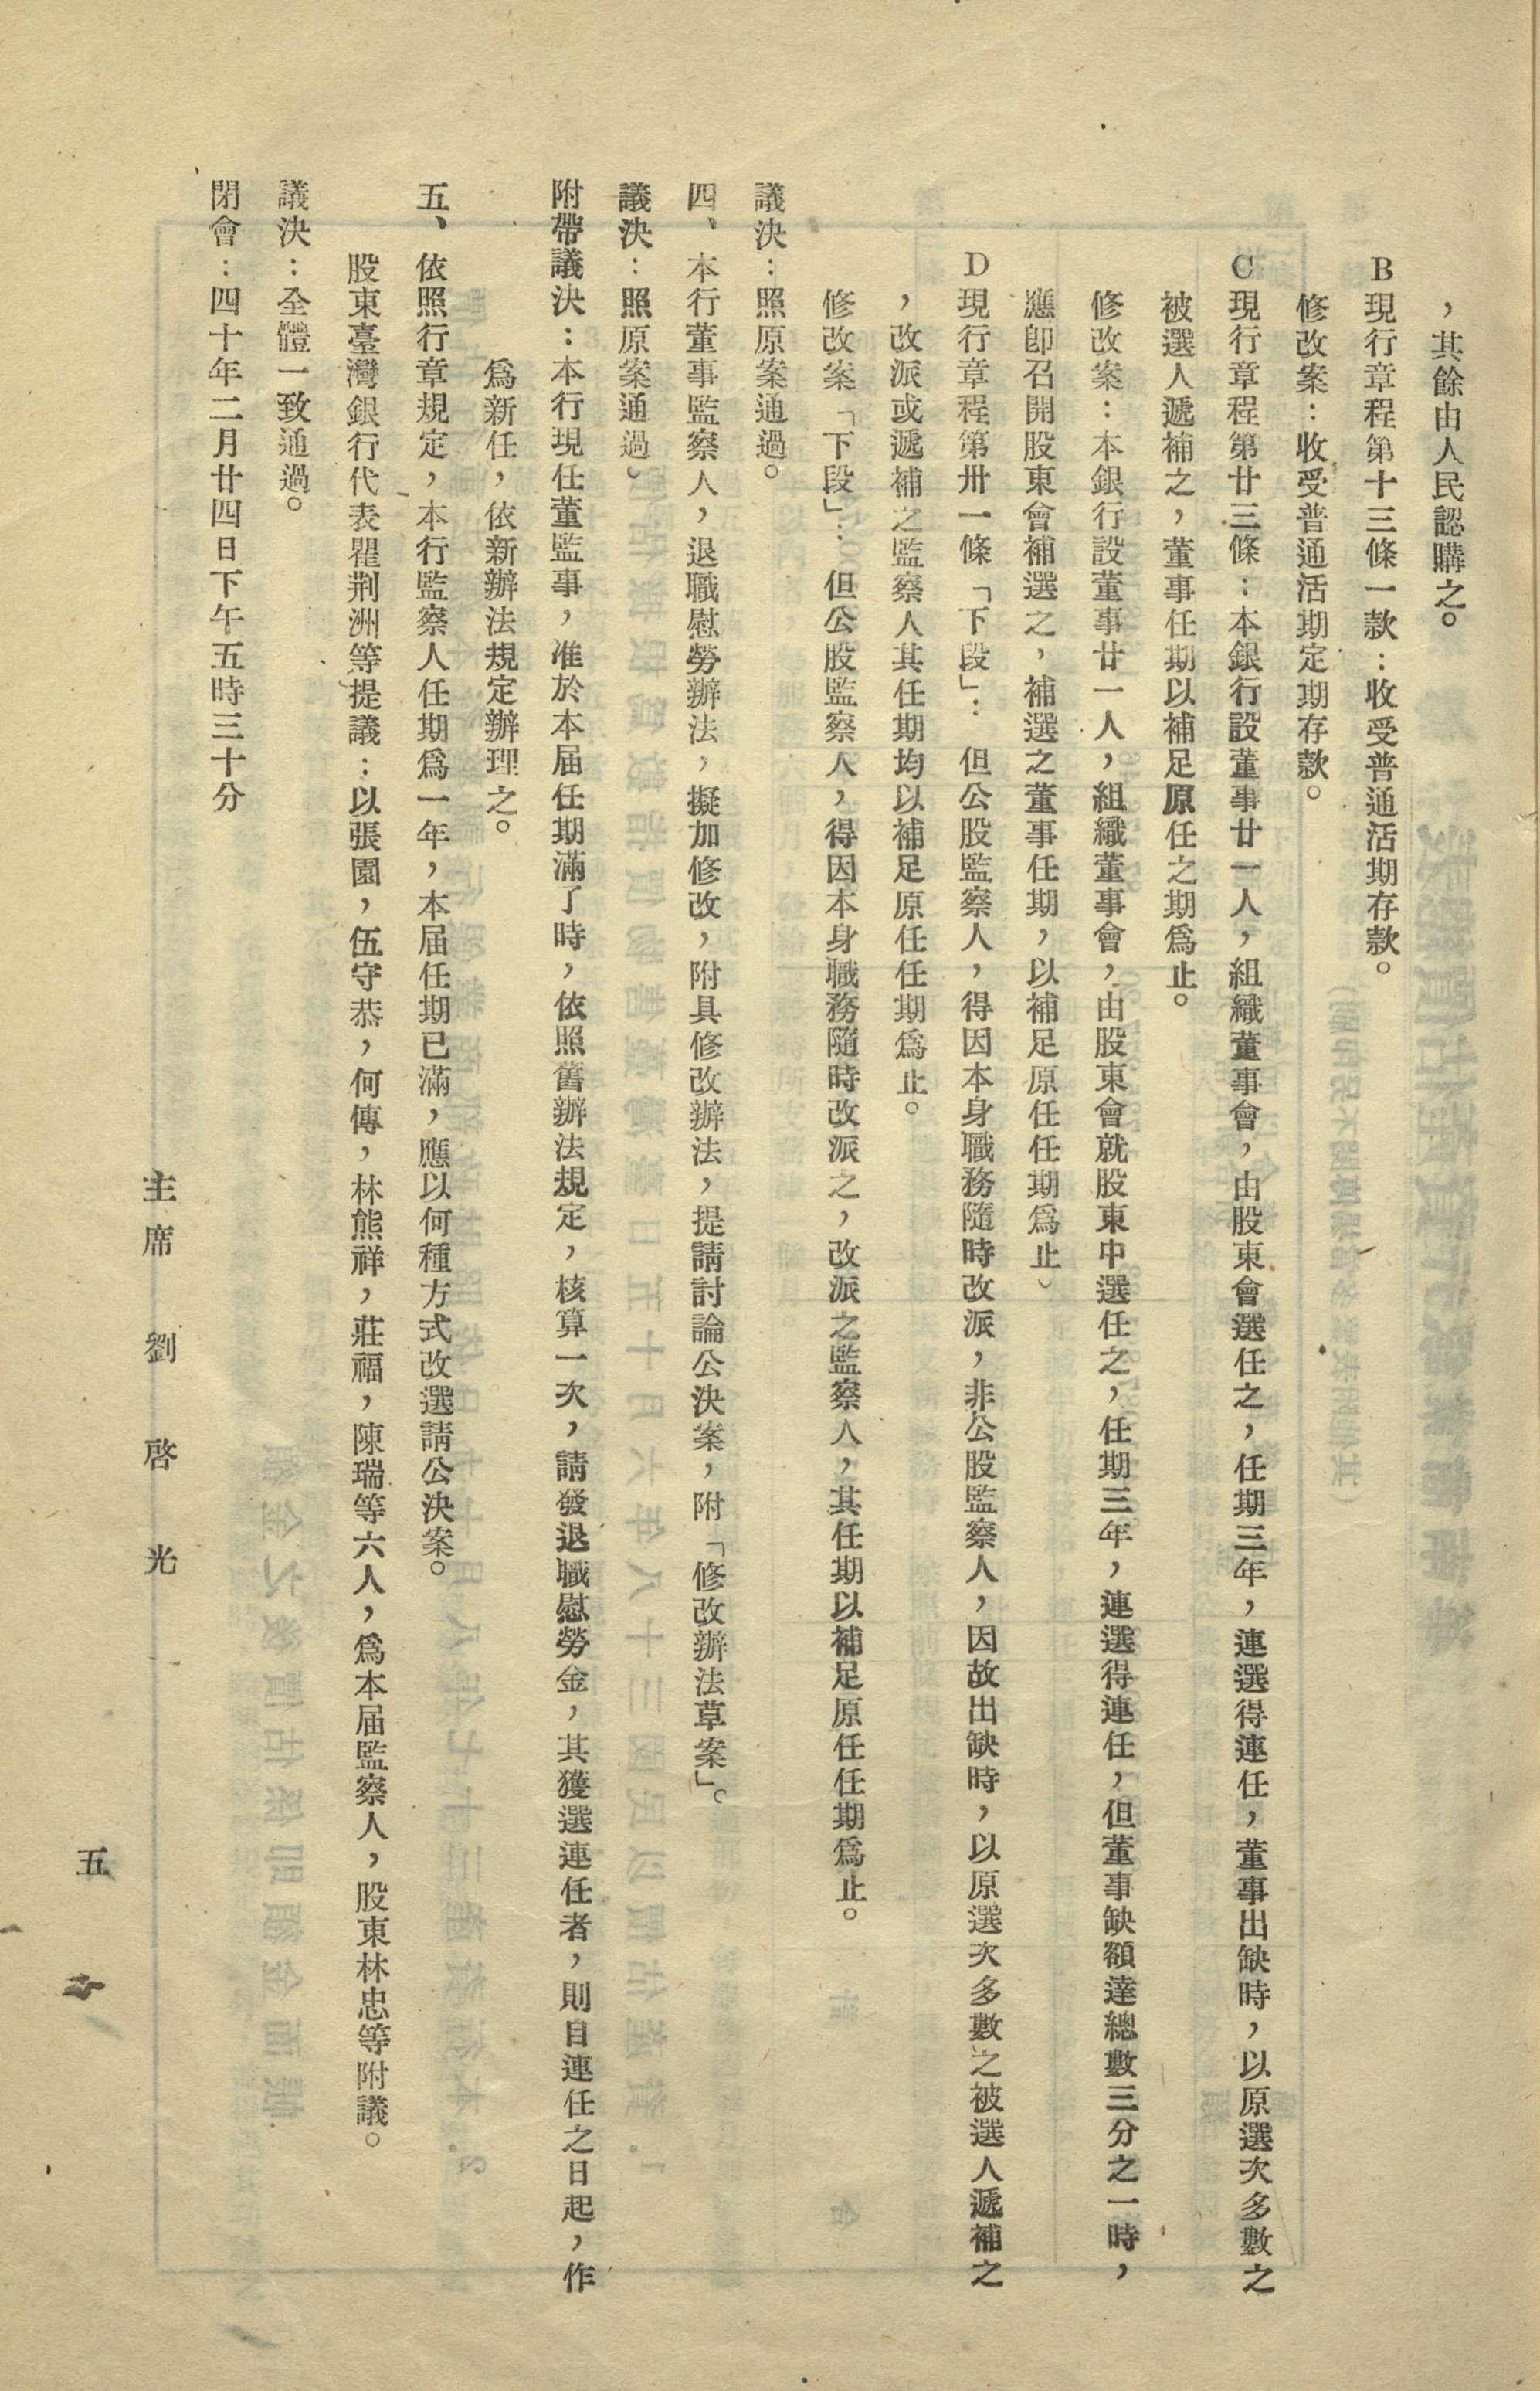 ，其餘由人民認購之。
B現行章程第十三條一款：收受普通活期存款。
修改案：收受普通活期定期存款。
C現行章程第廿三條：本銀行設董事廿一人，組織董事會，由股東會選任之，任期三年，連選得連任，董事出缺時，以原選次多數之
被選人遞補之，董事任期以補足原任之期爲止。
修改案：本銀行設董事廿一人，組織董事會，由股東會就股東中選任之，任期三年，連選得連任，但董事缺額達總數三分之一時，
應卽召開股東會補選之，補選之董事任期，以補足原任任期爲止。
D現行章程第卅一條「下段」：但公股監察人，得因本身職務隨時改派，非公股監察人，因故出缺時，以原選次多數之被選人遞補之
，改派或遞補之監察人其任期均以補足原任任期爲止。
修改案「下段」：但公股監察人，得因本身職務隨時改派之，改派之監察人，其任期以補足原任任期爲止。
議決：照原案通過。
四、本行董事監察人，退職慰勞辦法，擬加修改，附具修改辦法，提請討論公決案，附「修改辦法草案」。
議決：照原案通過。
附帶議決：本行現任董監事，准於本届任期滿了時，依照舊辦法規定，核算一次，請發退職慰勞金，其獲選連任者，則自連任之日起，作
爲新任，依新辦法規定辦理之。
五、依照行章規定，本行監察人任期爲一年，本届任期已滿，應以何種方式改選請公決案。
股東臺灣銀行代表瞿荆洲等提議：以張園，伍守恭，何傳，林熊祥，莊福，陳瑞等六人，爲本届監察人，股東林忠等附議。
議決：全體一致通過。
閉會：四十年二月廿四日下午五時三十分
主席 劉啓光
五